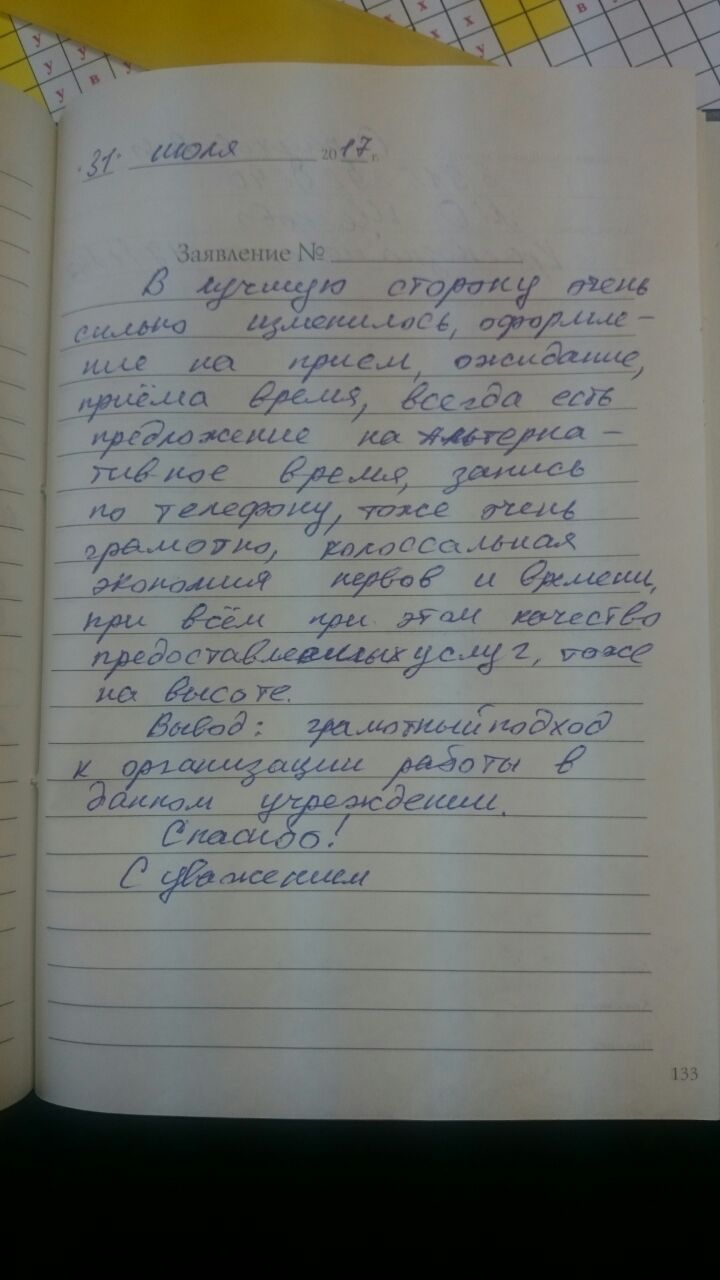 у х х х в
у у х
у в у у
"31" июля 2017г.
Заявление №
В лучшую сторону очень
сильно изменилось, оформле-
ние на прием, ожидание,
приёма время, всегда есть
предложение на альтерна-
тивное время, запись
по телефону, тоже очень
грамотно, колоссальная
экономия нервов и времени,
при всём при этом качество
предоставленных услуг, тоже
на высоте.
Вывод: грамотный подход
к организации работы в
данном учреждении.
Спасибо!
С уважением
133